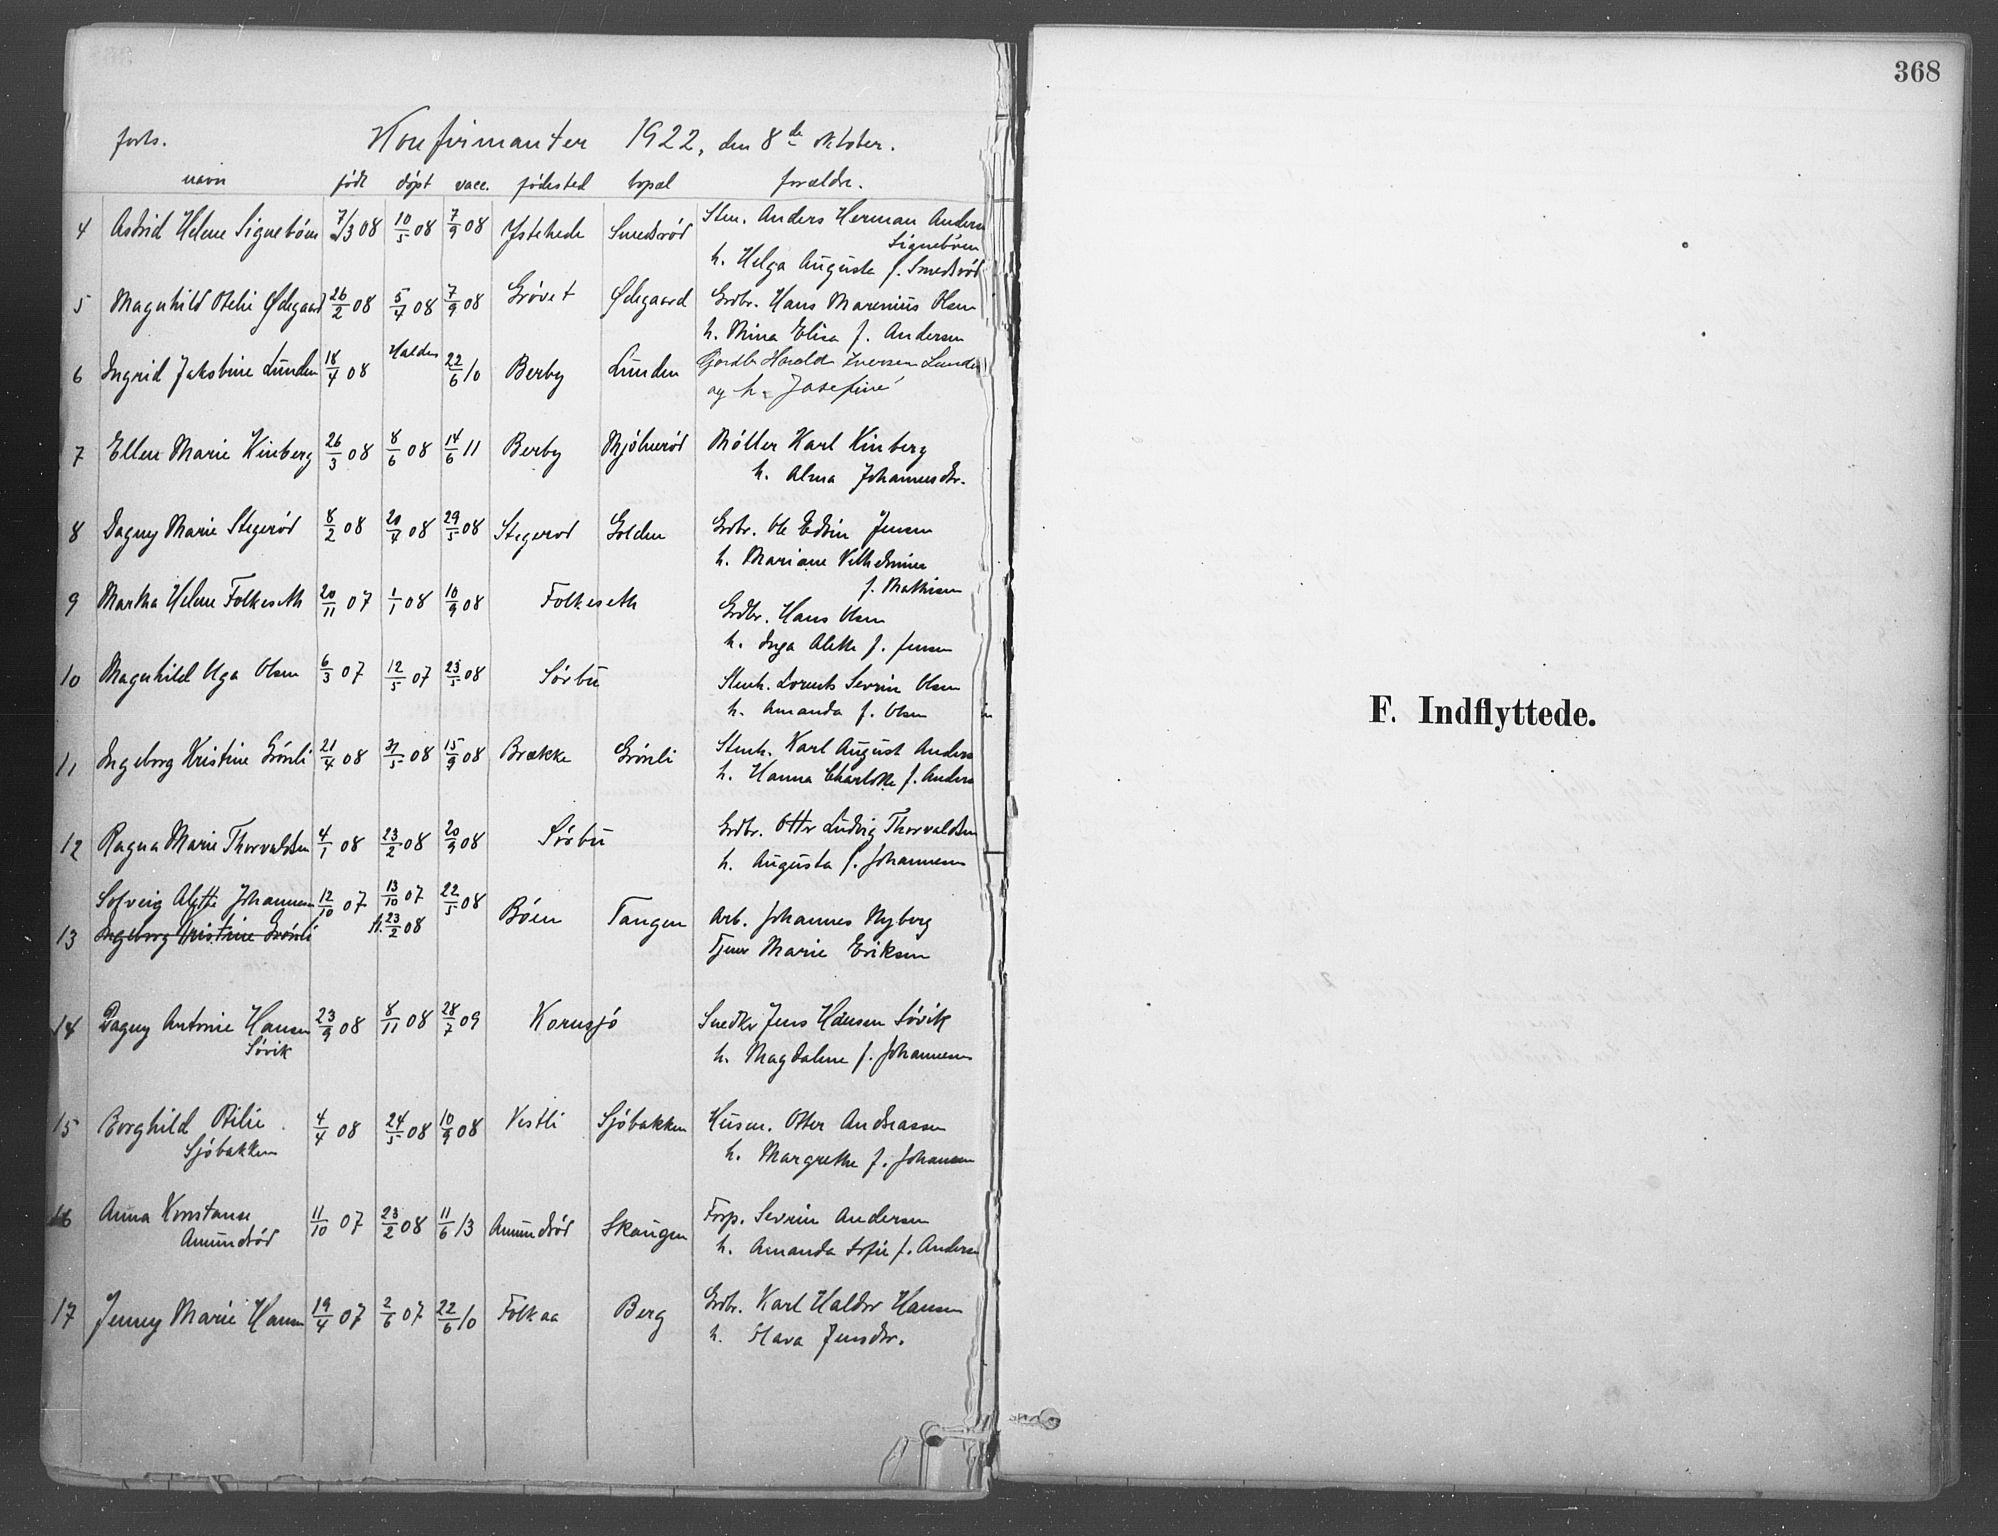 forts. Konfirmanter 1922, den 8de oktober.
navn født døpt vacc. fødested bopæl forældre.
4 Astrid Helene Signebøen 7/3 08 10/5 08 7/9 08 Ystehede Smedsrød Sten. Anders Herman Anders
Signebøen
h. Helga Augusta f. Smedsrød
5 Magnhild Otelie Ødegaard 26/2 08 5/4 08 7/9 08 Grøvet Ødegaard Grdbr. Hans Marenius Olsen
h. Mina Elisa f. Andersen
6 Ingrid Jakobine Lunden 18/4 08 Halden 22/6 10 Berby Lunden Gardbr Harald Iversen Lunde
og h. Josefine
7 Ellen Marie Kinberg 26/3 08 8/6 08 14/6 11 Berby Mjølnerød Møller Karl Kinberg
h. Alma Johannesdtr.
8 Dagny Marie Stegerød 8/2 08 20/4 08 29/5 08 Stegerød Holden Grdbr. Ole Edvin Jensen
h. Mariane Vilhelmine
f. Mathisen
9 Martha Helene Folkeseth 20/11 07 1/1 08 10/9 08 Folkeseth Grdbr. Hans Olsen
h. Inga Alette f. Jensen
10 Magnhild Olga Olsen 6/3 07 12/5 07 23/5 08 Sørbu Stenh. Lorents Sevrin Olsen
h. Amanda f. Olsen
11 Ingeborg Kristine Grønli 21/4 08 31/5 08 15/9 08 Brække Grønli Stenh. Karl August Anders
h. Hanna Charlotte f. Anders
12 Ragna Marie Thorvaldsen 4/1 08 23/2 08 20/9 08 Sørbu Grdbr. Otto Ludvig Thorvaldsen
h. Augusta f. Johannesen
Solveig Alette Johannesen 12/10 07 13/10 07 22/5 08
13 Ingeborg Kristine Grønli st. 23/2 08 Bøen Tangen Arb. Johannes Nyberg
Tjener Marie Eriksen
14 Dagny Antonie Hansen 23/9 08 8/11 08 28/7 09 Kornsjø Snedker Jens Hansen Søvik
Søvik h. Magdalene f. Johannesen
15 Borghild Otilie 4/4 08 24/5 08 10/9 08 Vestli Sjøbakken Husm. Otter Andreassen
Sjøbakken h. Margrethe f. Johansen
16 Anna Konstanse 11/10 07 23/2 08 11/6 13 Amundrød Skaugen Forp. Sevrin Andersen
Amundrød h. Amanda Sofie f. Anders
17 Jenny Marie Hansen 19/4 07 2/6 07 22/6 10 Folkaa Berg Grdbr. Karl Haldor Hansen
h. Klara Jensdtr.
368
F. Indflyttede.